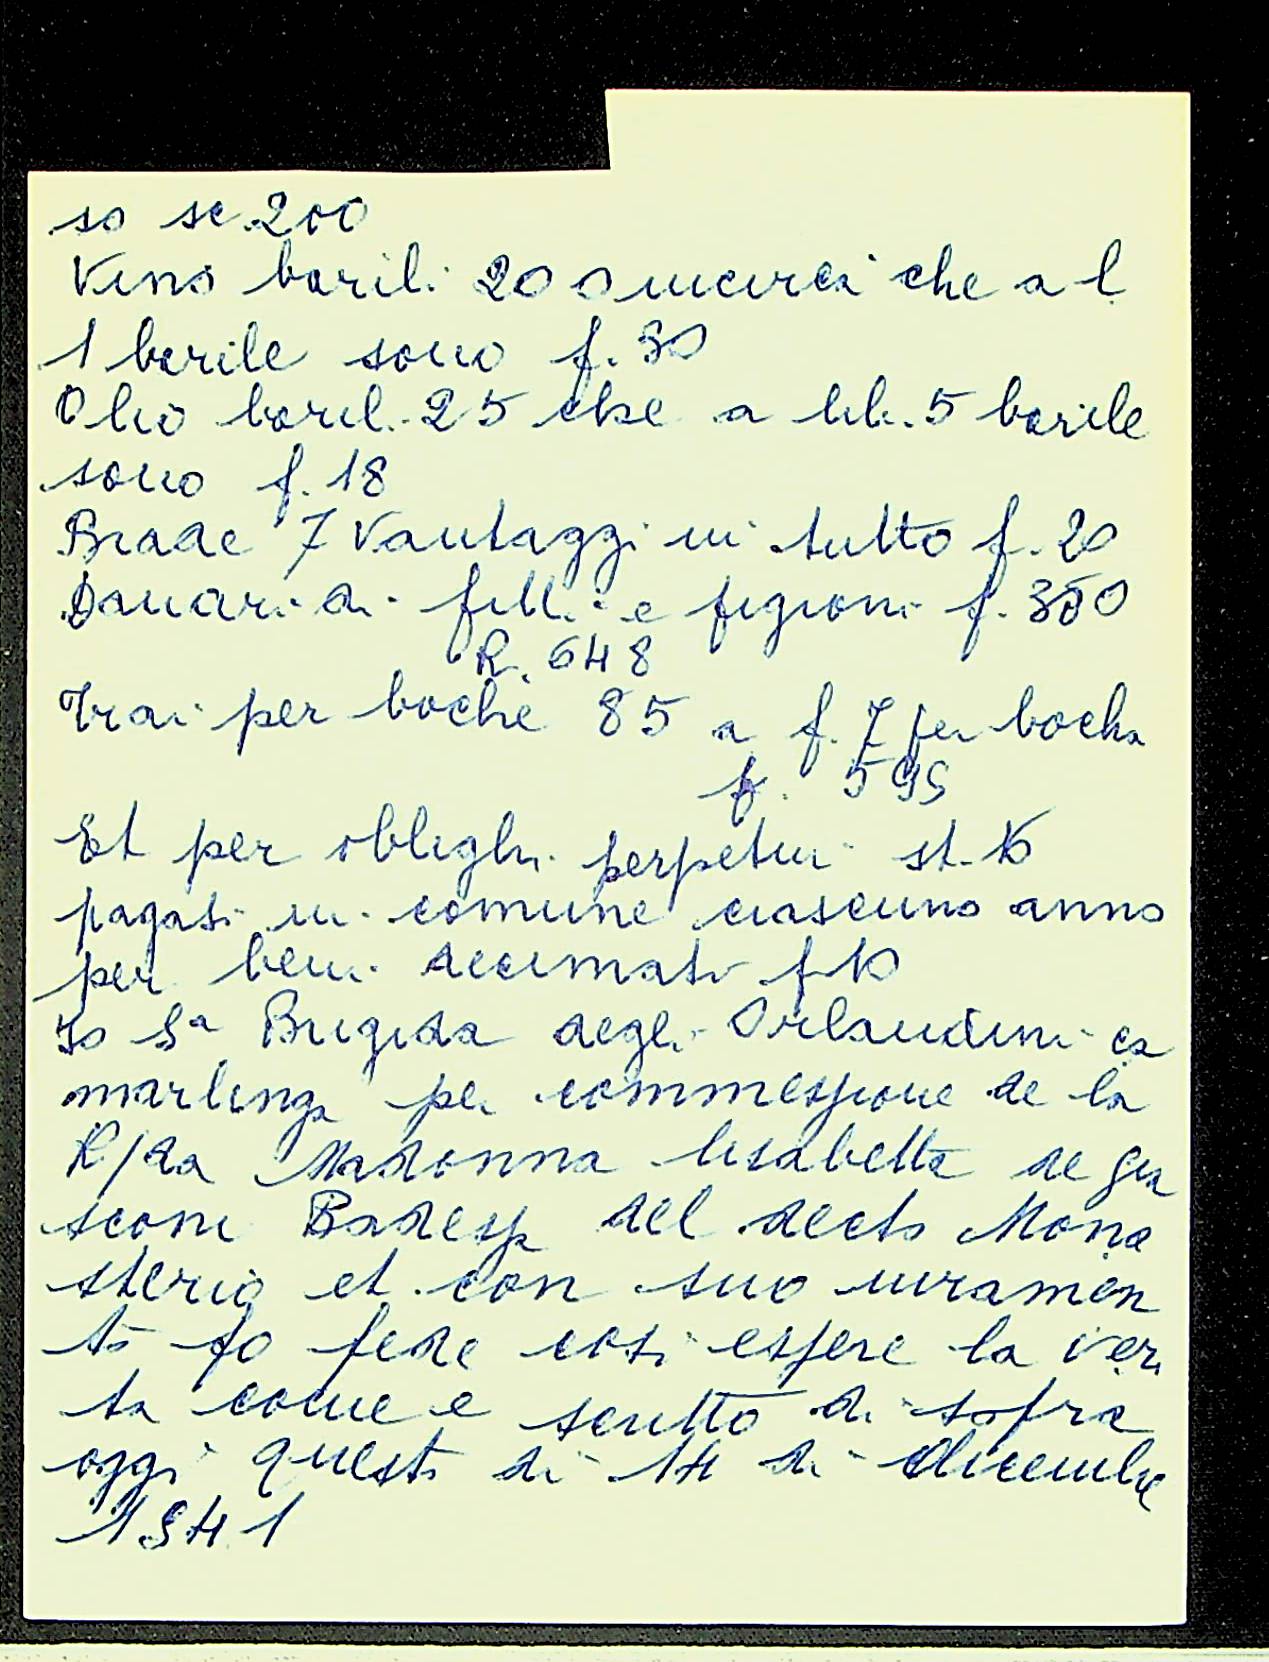 so sc. 200
Vino barili 200 incirca che a l
1 barile sono f. 30
Olio baril. 25 che a lib. 5 barile
sono f. 18
Biade 7 Vantaggi in tutto f. 20
Danari di fitti e pigioni f. 350
R. 648
Trai per boche 85 a f. 7 per bocha
f. 595
Et per oblighi perpetui st.
pagasi in comune ciascuno anno
per beni decimati f 10
Io Sa Brigida degli Orlandini ca
marlinga per commessione de la
R/da Madonna lisabetta de gua
sconi Badessa del decto Mona
sterio et con suo iuramen
to fo fede cosi essere la veri
ta come e scritto di sopra
oggi questo di 14 di dicembre
1541